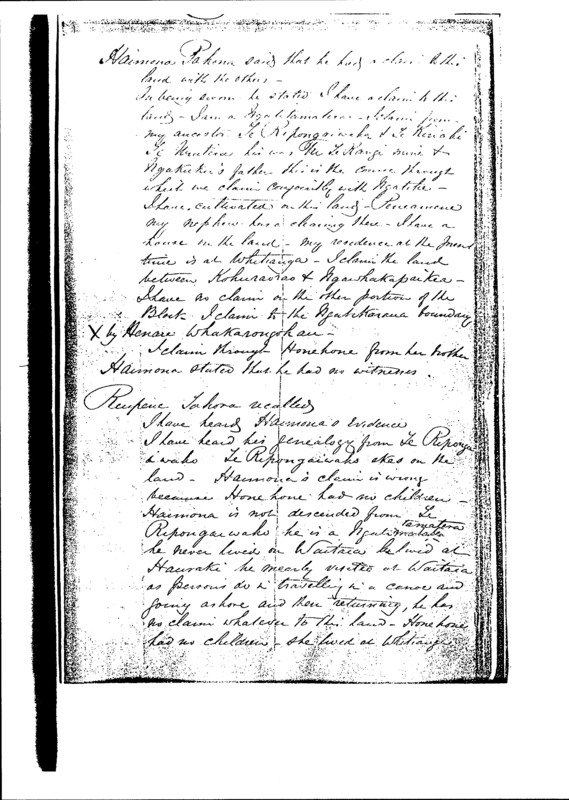 Haimona Pakona said that he had a claim to this
land with the others –
On being sworn he stated I have a claim to this
land – I am a Ngatitamatera – I claim from
my ancestor Te Ripongaiwaka & Te
Te his was Te Kangi mine &
father this is the course through
which we claim conjointly with –
I have cultivated on this land –
my nephew has a clearing there – I have a
house on the land – my residence at the present
time is at Whitianga – I claim the land
between & –
I have no claim on the other portion of the
Block I claim to the boundary
X by Henare –
I claim through Honehone from her brother
Haimona stated that he had no witnesses.
Reupene Tahora recalled
I have heard Haimona's evidence
I have heard his genealogy from Te Riponga
iwaka Te Ripongaiwaka was on the
land – Haimona's claim is wrong
because Honehone had no children –
Haimona is not descended from Te
Ripongaiwaka he is a Ngatitamatera
he never lived on Waitaia he lived at
Hauraki he mearly visited at Waitaia
as persons do in travelling in a canoe and
going ashore and then returning, he has
no claim whatever to this land – Honehone
had no children – she lived at Whitianga